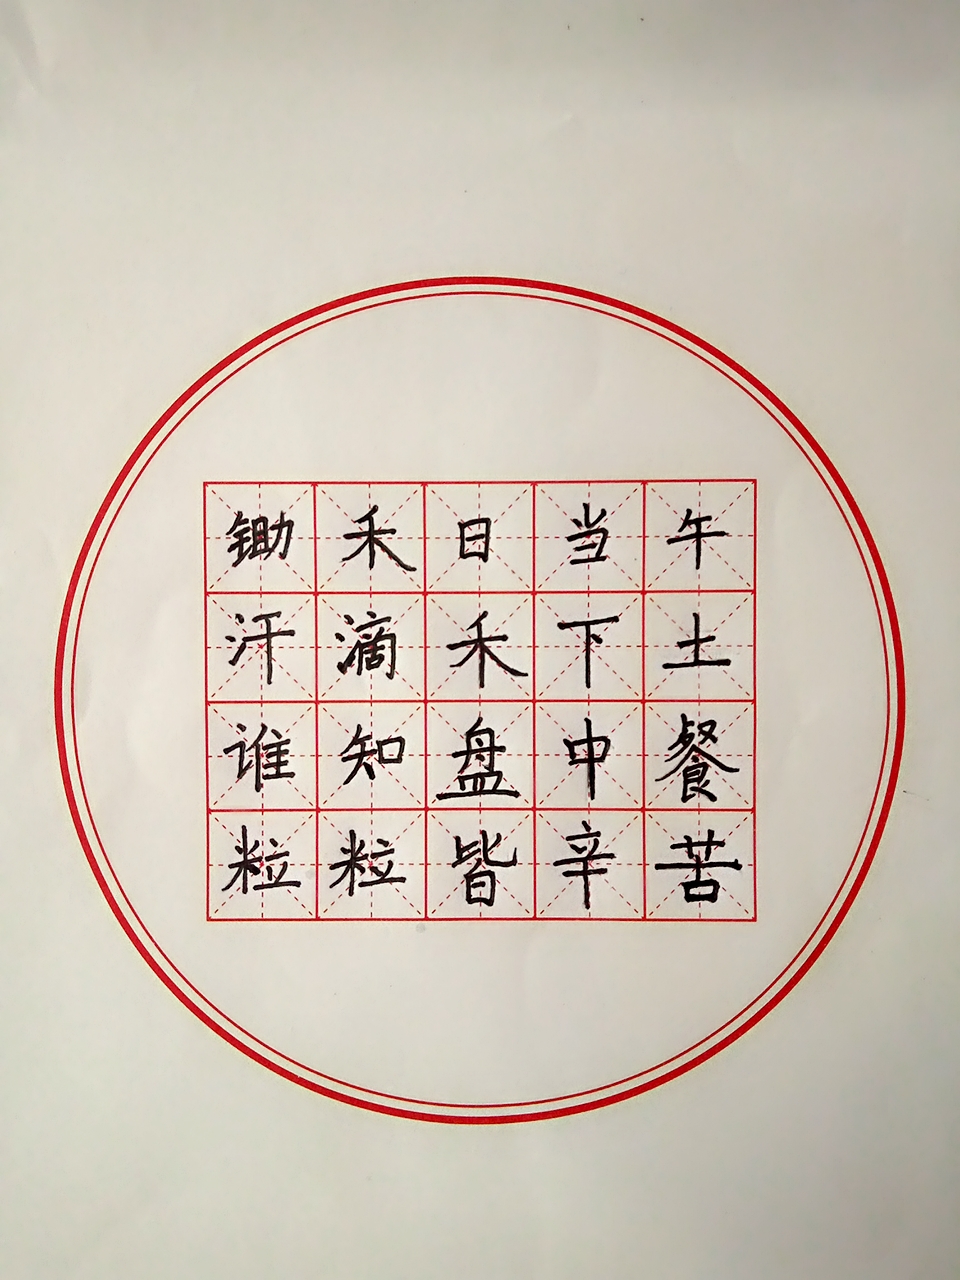 锄禾日当午
汗滴禾下土
谁知盘中餐
粒粒皆辛苦